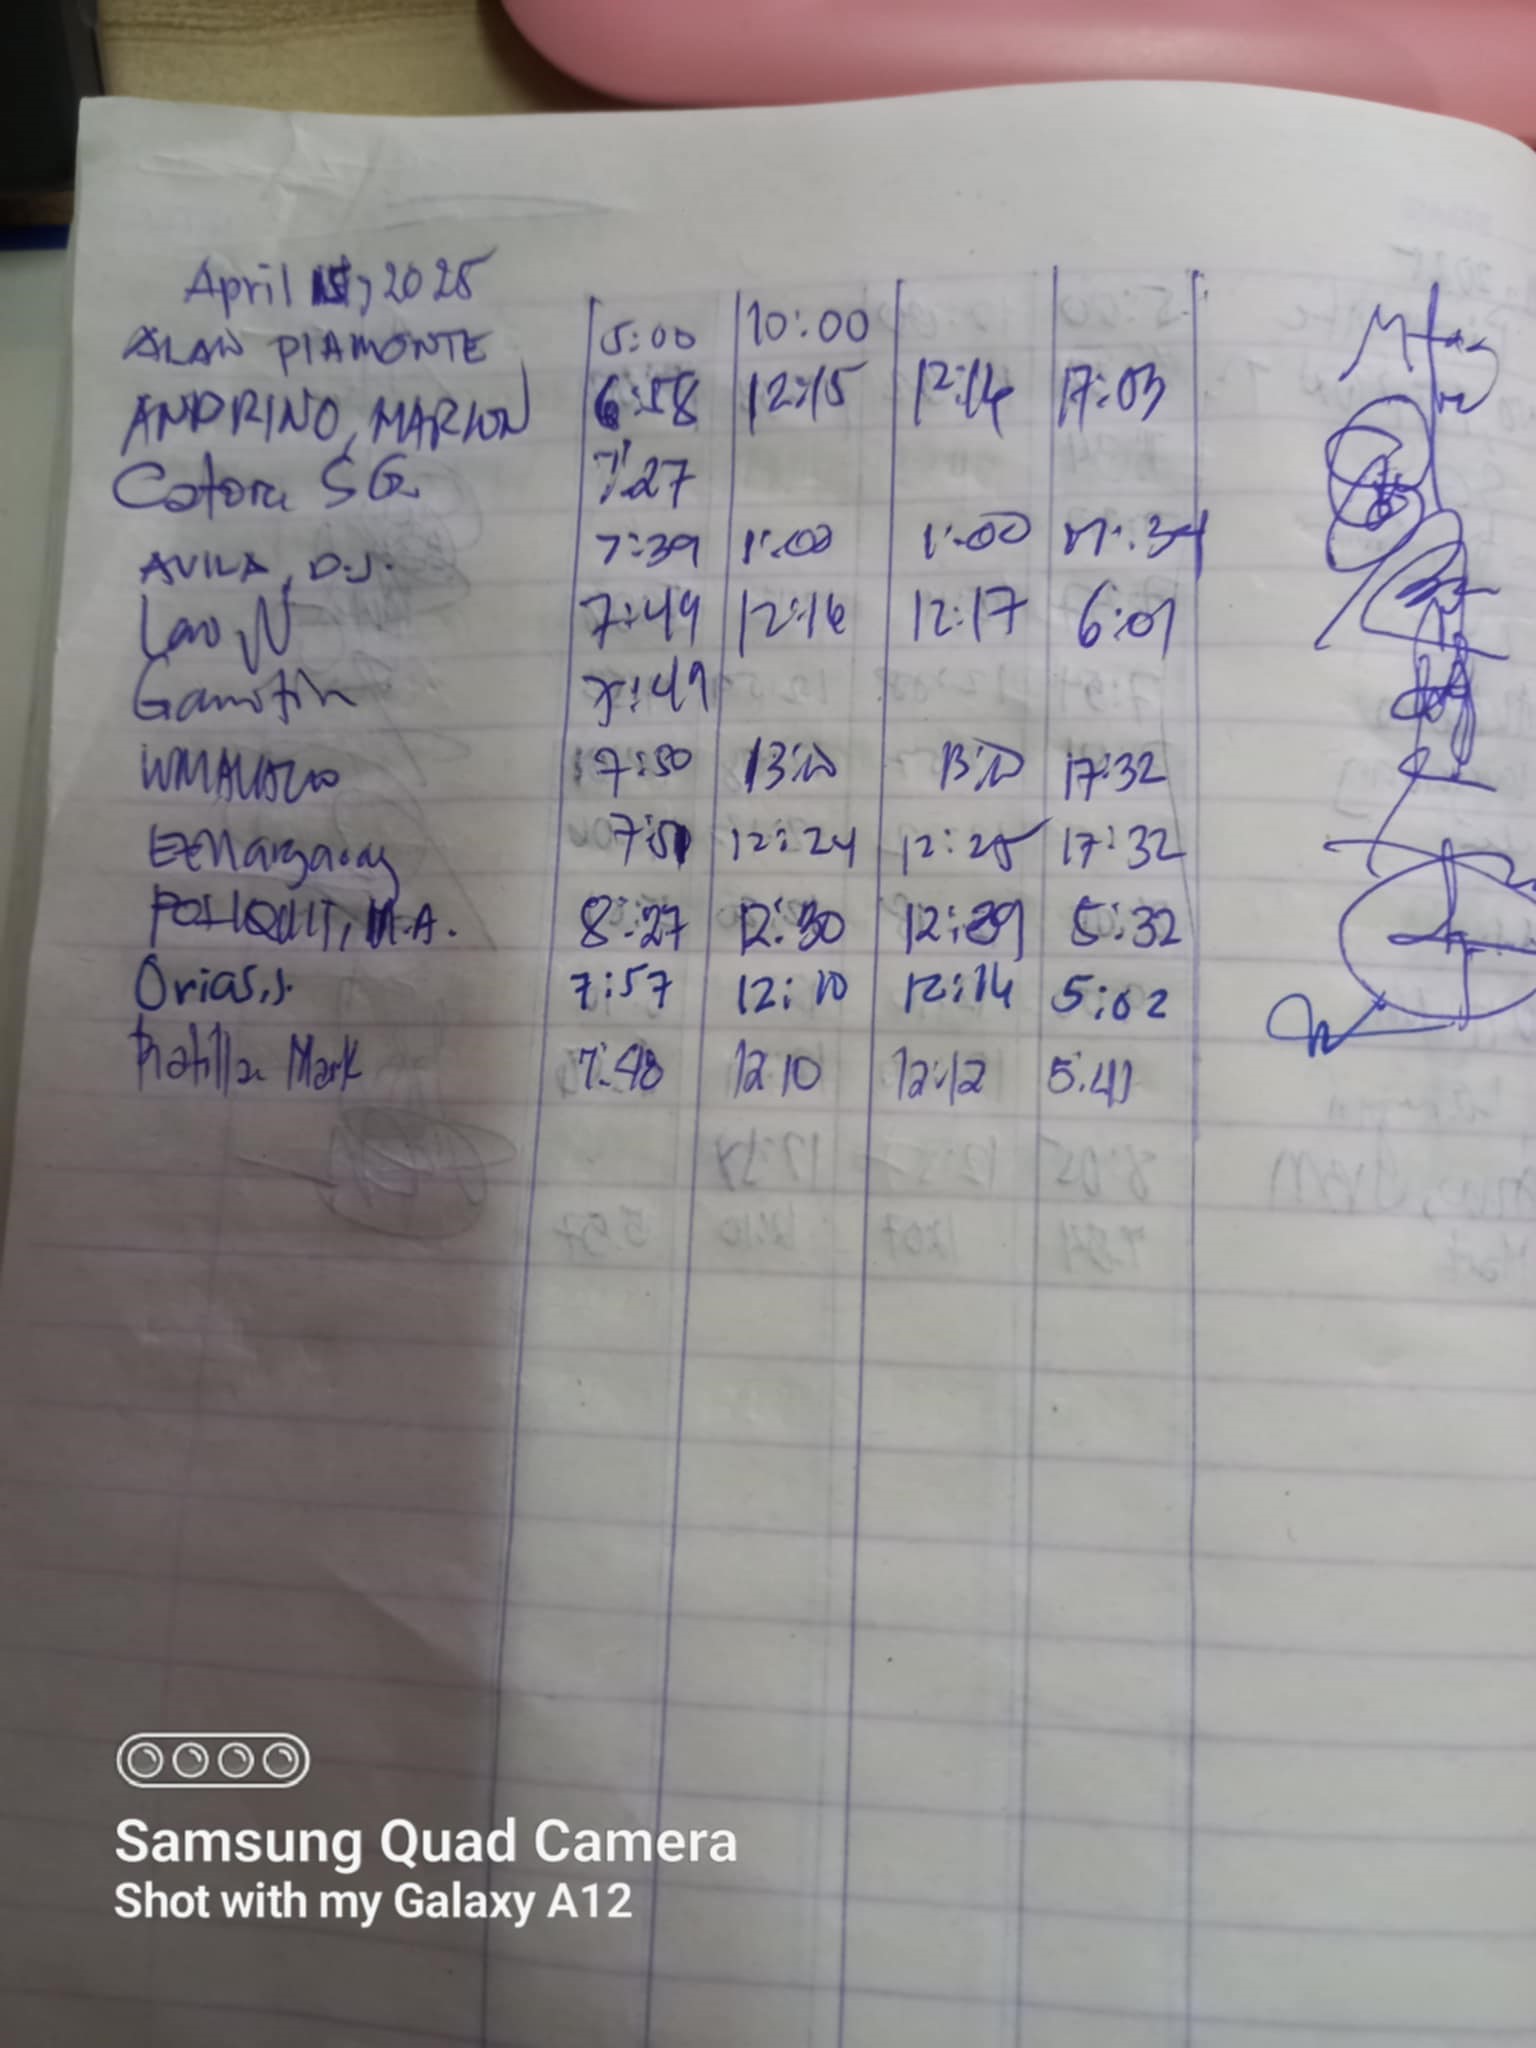 April 15, 2025
ALAN PIAMONTE 5:00 10:00
ANDRINO, MARLON 6:58 12:15 12:16 17:03
Catora SG 7:27
AVILA, D.J. 7:39 1:00 1:00 17:34
Lao, N 7:49 12:16 12:17 6:01
7:49
7:50 13:10 13:10 17:32
7:51 12:24 12:25 17:32
M.A. 8:27 12:30 12:39 5:32
Orias, J. 7:57 12:10 12:14 5:02
Ratilla Mark 7:48 12 10 12:12 5:41
Samsung Quad Camera
Shot with my Galaxy A12